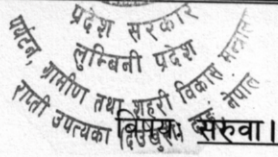 प्रदेश सरकार
लुम्बिनी प्रदेश
पर्यटन, ग्रामीण तथा शहरी विकास मन्त्रालय
राप्ती उपत्यका नेपाल
विषयः सरुवा।